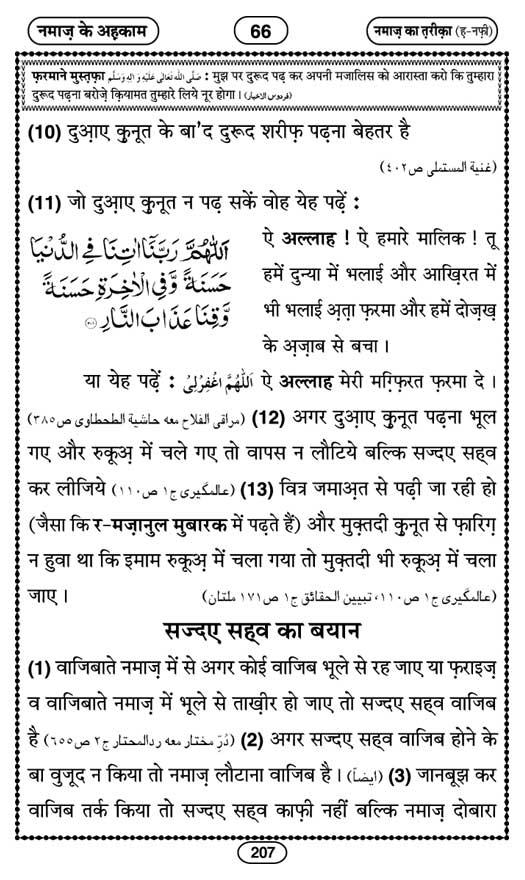 नमाज़ के अह़काम
66
नमाज़ का त़रीक़ा (ह़-नफ़ी)
फ़रमाने मुस्त़फ़ा صَلَّى اللّٰه تَعَالٰى عَلَيْهِ وَاٰلِهٖ وَسَلَّم : मुझ पर दुरूद पढ़ कर अपनी मजालिस को आरास्ता करो कि तुम्हारा
दुरूद पढ़ना बरोज़े क़ियामत तुम्हारे लिये नूर होगा । (فردوس الاخبار)
(10) दुआ़ए क़ुनूत के बा'द दुरूद शरीफ़ पढ़ना बेहतर है
(غنية المستملى ص٤٠٢)
(11) जो दुआ़ए क़ुनूत न पढ़ सकें वोह येह पढ़ें :
اَللّٰهُمَّ رَبَّنَاۤ اٰتِنَا فِي الدُّنْيَا
حَسَنَةً وَّفِي الْاٰخِرَةِ حَسَنَةً
وَّقِنَا عَذَابَ النَّارِ
ऐ अल्लाह ! ऐ हमारे मालिक ! तू
हमें दुन्या में भलाई और आख़िरत में
भी भलाई अ़त़ा फ़रमा और हमें दोज़ख़
के अ़ज़ाब से बचा ।
या येह पढ़ें : اَللّٰهُمَّ اغْفِرْلِىْ ऐ अल्लाह मेरी मग़्फ़िरत फ़रमा दे ।
(مراقى الفلاح معه حاشية الطحطاوى ص٣٨٥) (12) अगर दुआ़ए क़ुनूत पढ़ना भूल
गए और रुकूअ़ में चले गए तो वापस न लौटिये बल्कि सज्दए सह्व
कर लीजिये (عالمگیری ج١ ص١١٠) (13) वित्र जमाअ़त से पढ़ी जा रही हो
(जैसा कि र-मज़ानुल मुबारक में पढ़ते हैं) और मुक़्तदी क़ुनूत से फ़ारिग़
न हुवा था कि इमाम रुकूअ़ में चला गया तो मुक़्तदी भी रुकूअ़ में चला
जाए । (عالمگیری ج١ ص١١٠، تبیین الحقائق ج١ ص١٧١ ملتان)
सज्दए सह्व का बयान
(1) वाजिबाते नमाज़ में से अगर कोई वाजिब भूले से रह जाए या फ़राइज़
व वाजिबाते नमाज़ में भूले से ताख़ीर हो जाए तो सज्दए सह्व वाजिब
है (دُرِّ مختار معه ردالمحتار ج٢ ص٦٥٥) (2) अगर सज्दए सह्व वाजिब होने के
बा वुजूद न किया तो नमाज़ लौटाना वाजिब है । (ایضاً) (3) जानबूझ कर
वाजिब तर्क किया तो सज्दए सह्व काफ़ी नहीं बल्कि नमाज़ दोबारा
207